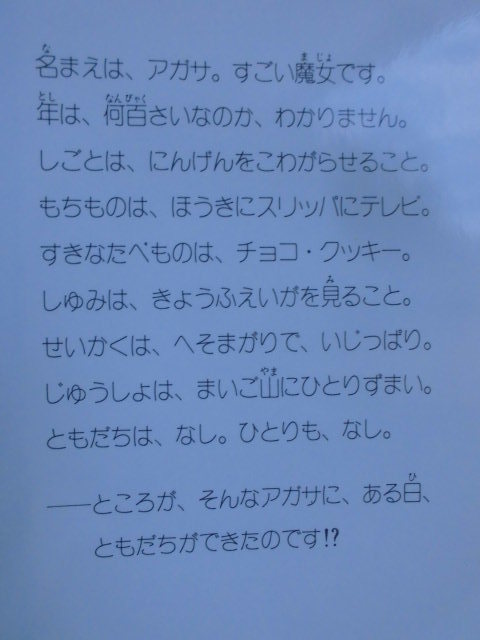 名まえは、アガサ。すごい魔女です。
年は、何百さいなのか、わかりません。
しごとは、にんげんをこわがらせること。
もちものは、ほうきにスリッパにテレビ。
すきなたべものは、チョコ・クッキー。
しゅみは、きょうふえいがを見ること。
せいかくは、へそまがりで、いじっぱり。
じゅうしょは、まいご山にひとりずまい。
ともだちは、なし。ひとりも、なし。
――ところが、そんなアガサに、ある日、
ともだちができたのです!?